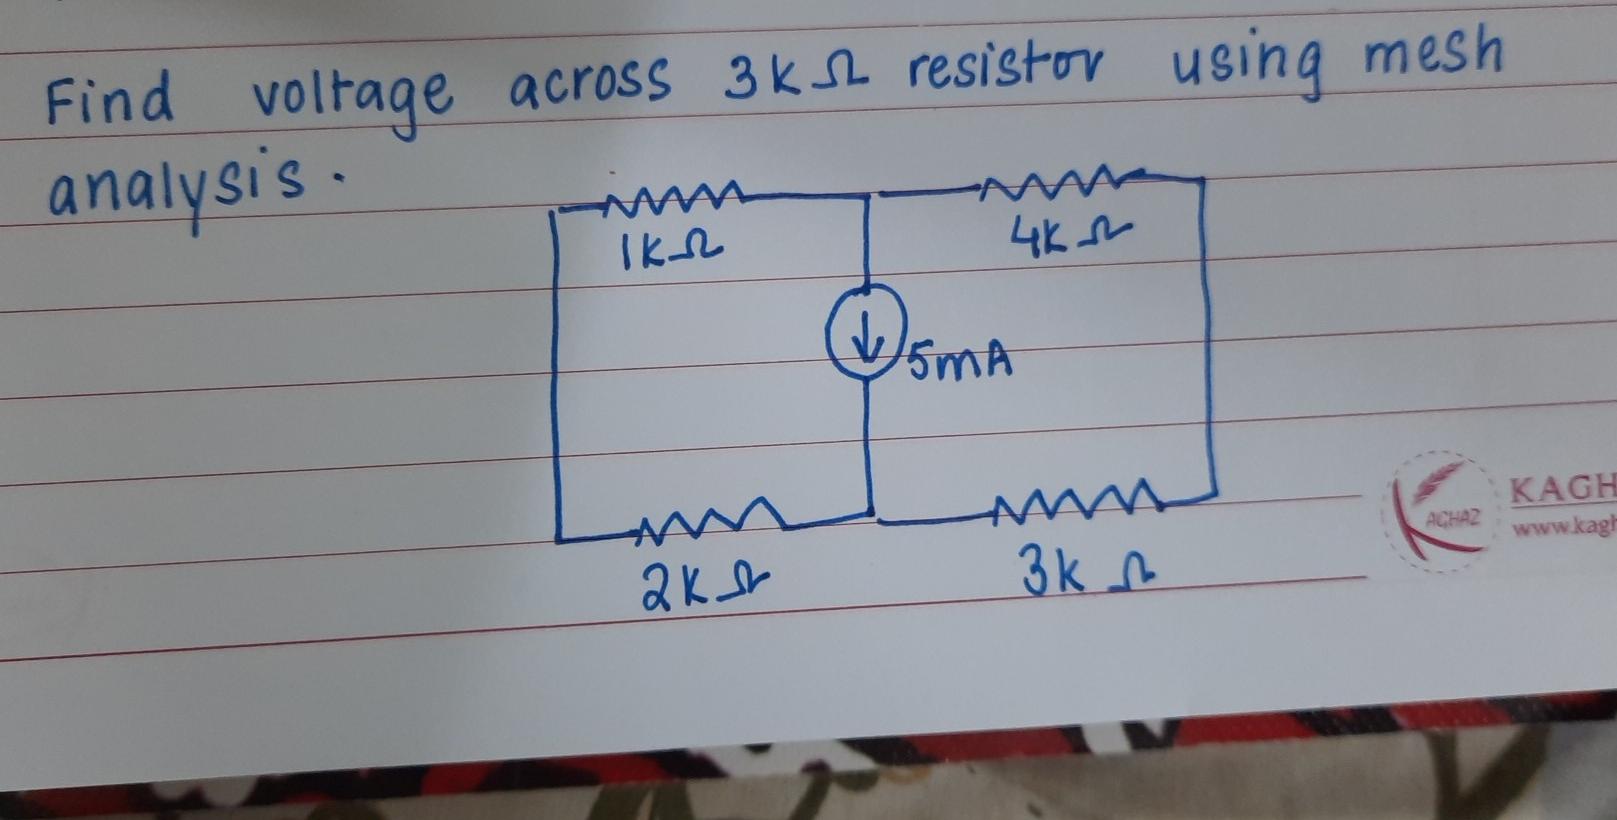 Find voltage across 3kΩ resistor using mesh
analysis.
1kΩ
4kΩ
5mA
2kΩ
3kΩ
KAGH
AGHAZ
www.kagh